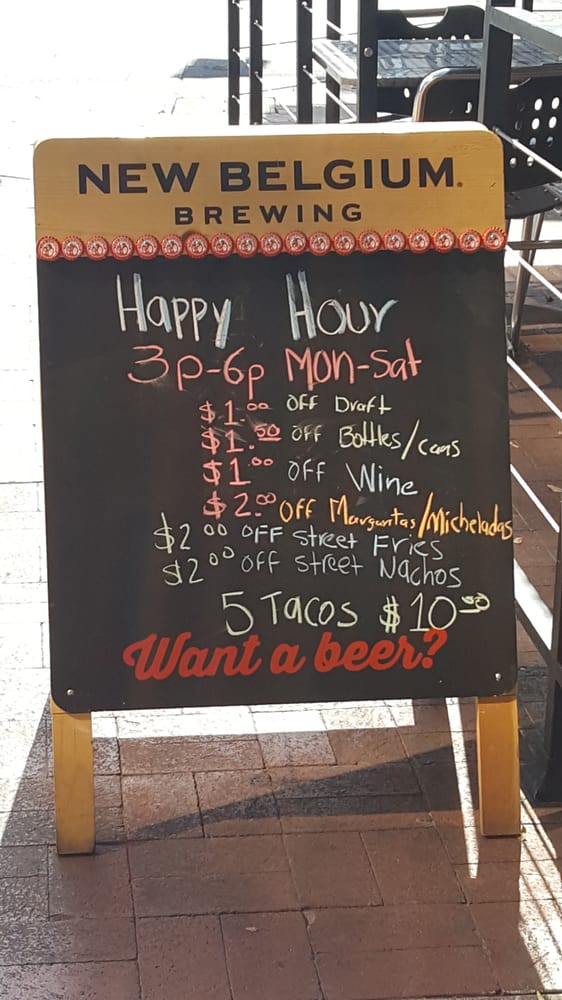 NEW BELGIUM.
BREWING
Happy Hour
3p-6p Mon-Sat
$1.00 OFF Draft
$1.50 OFF Bottles/cans
$1.00 OFF Wine
$2.00 OFF Margaritas/Micheladas
$2.00 OFF Street Fries
$2.00 OFF Street Nachos
5 Tacos $10.50
Want a beer?